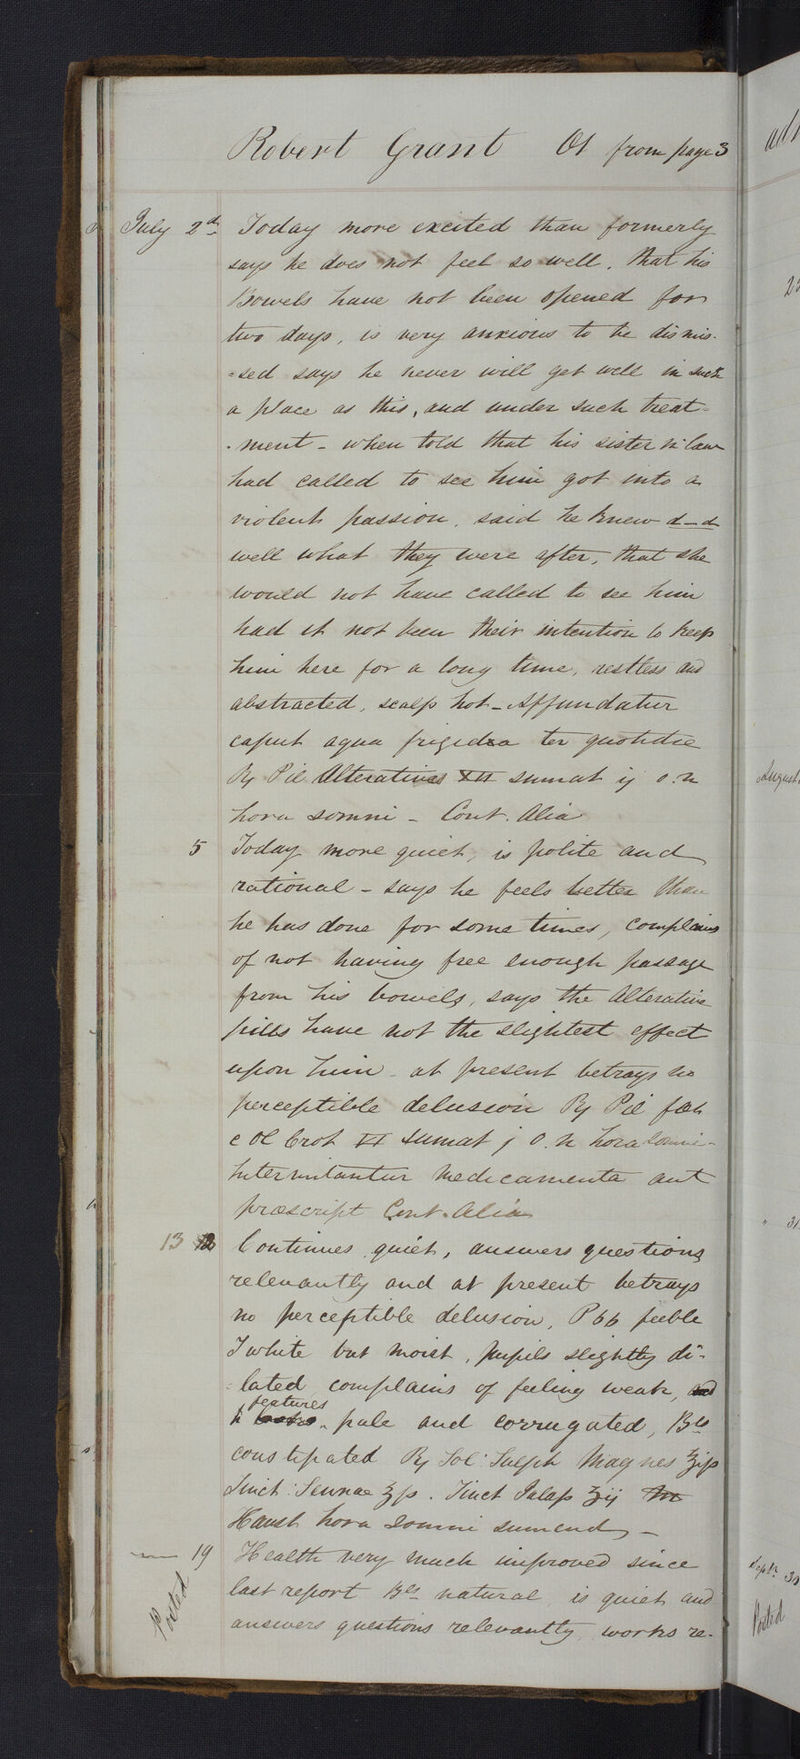 Robert Grant Ct from page 3
July 2d Today more excited than formerly
says he does not feel so well, that his
Bowels have not been opened for
two days, is very anxious to be dismis-
-sed says he never will get well in such
a place as this, and under such treat-
-ment - when told that his sister in law
had called to see him got into a
violent passion, said he knew d—d
well what they were after, that she
would not have called to see him
had it not been their intention to keep
him here for a long time, restless and
abstracted, scalp hot - Affundatur
caput aqua frigida ter quotidie
Rx Pil Alteratives XII sumat ij o.n
hora somni - Cont. Alia
5 Today more quiet, is polite and
rational - says he feels better than
he has done for some times, complains
of not having free enough passage
from his bowels, says the Alterative
pills have not the slightest effect
upon him - at present betrays no
perceptible delusion Rx Pil
c Ol Crot VI sumat j o.n hora somni -
Intermittantur medicamenta ant
præscript Cont. Alia
13 Continues quiet, answers questions
relevantly and at present betrays
no perceptible delusion, P 66 feeble
T white but moist, pupils slightly di-
-lated complains of feeling weak,
features
pale and corrugated, Bls
constipated Rx Sol: Sulph Magnes ℥ifs
Tinct: Sennae ℥fs. Tinct Jalap ʒij
Haust hora somni sumend -
19 Health very much improved since
last report Bls natural is quiet and
answers questions relevantly works re-
Posted
August
31
Sept. 30
Posted